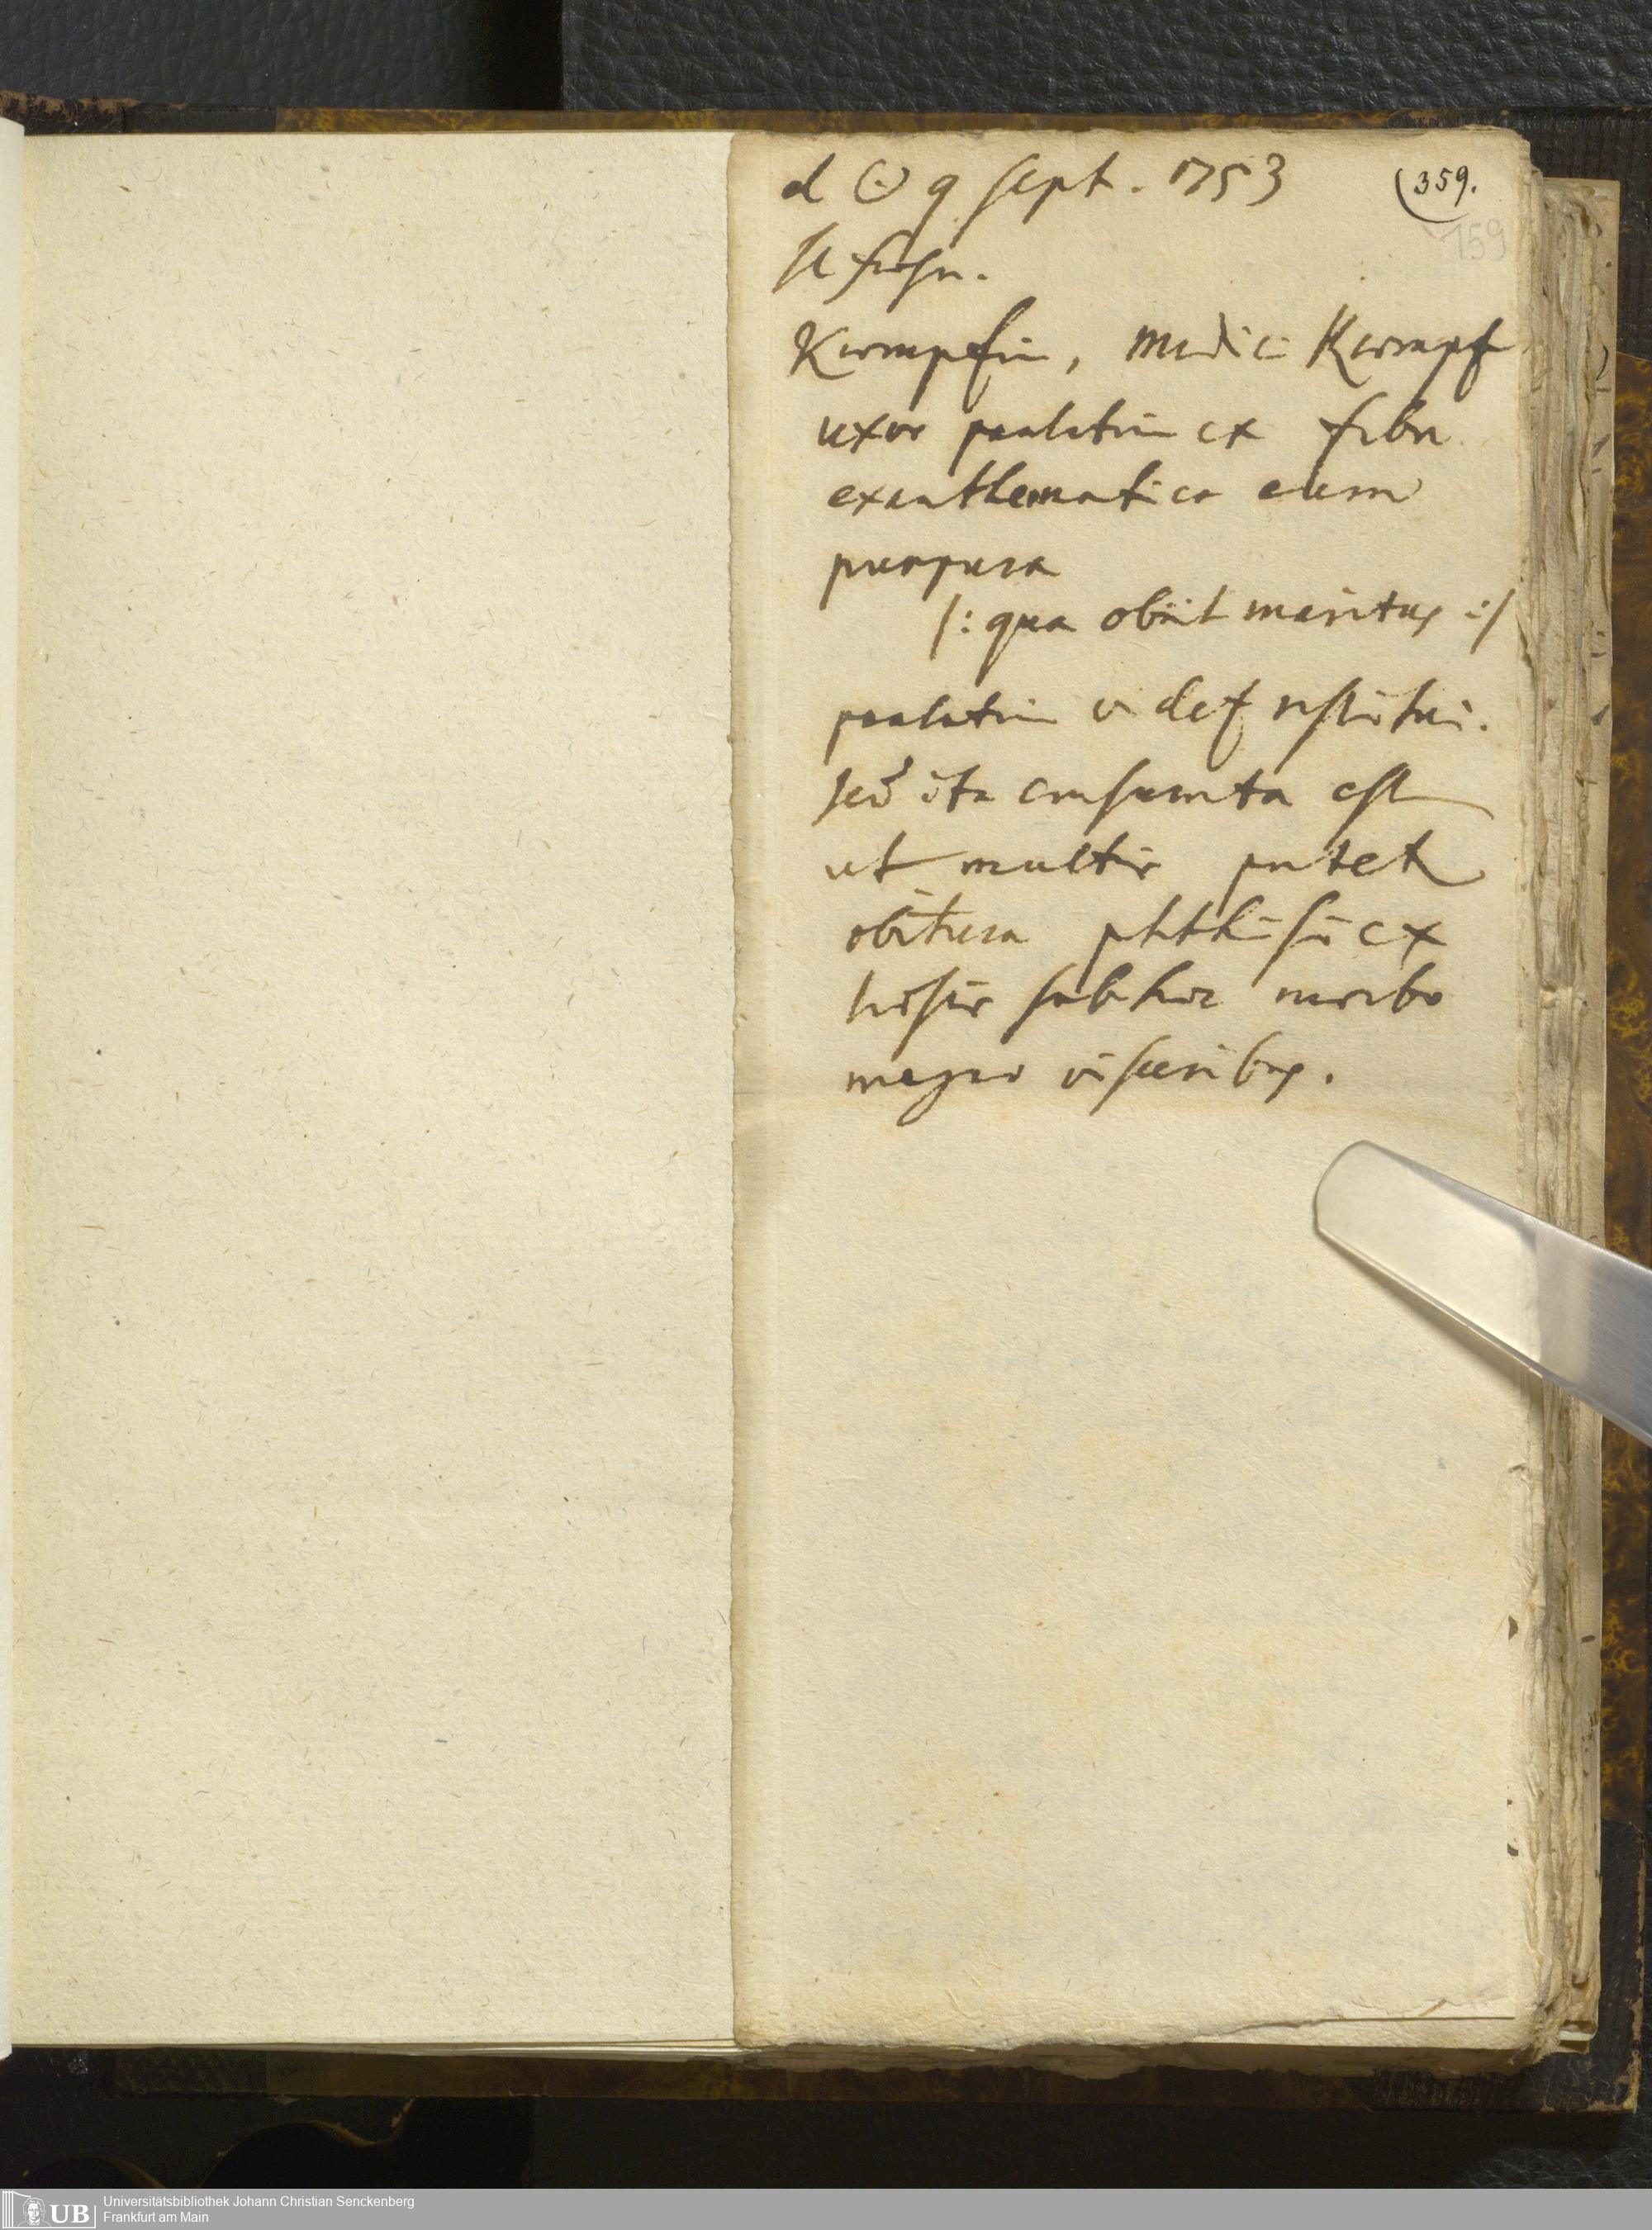 d ☉ 9 sept. 1753
(359.
159
Kaempfin, medici Kaempf
uxor paulatim ex febre
exanthematica cum
purpura
/: qua obiit maritus :/
paulatim videt restitui.
sed ita consumta est
ut multis putet
obitura phthisi ex
laesis sub hoc morbo
magno visceribus.
UB
Universitätsbibliothek Johann Christian Senckenberg
Frankfurt am Main